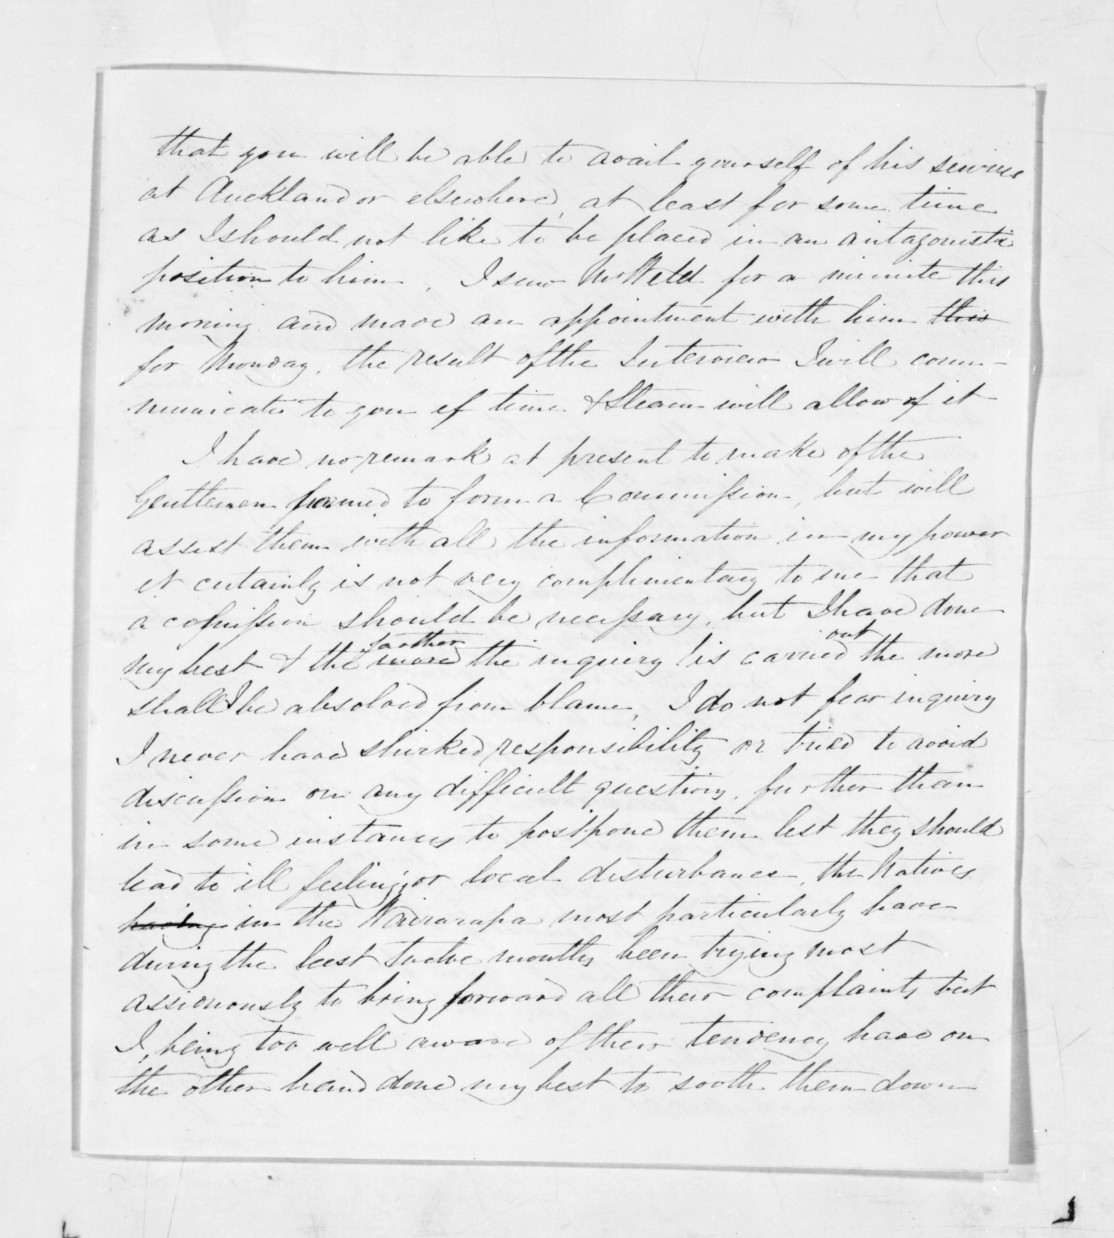 that you will be able to avail yourself of his services
at Auckland or elsewhere, at least for some time
as I should not like to be placed in an antagonistic
position to him. I saw Mr Weld for a minute this
morning and made an appointment with him this
for Monday, the result of the Interview I will com-
municate to you if time & Steam will allow of it
I have no remark at present to make of the
Gentlemen named to form a Commission, but will
assist them with all the information in my power
it certainly is not very complimentary to me that
a comission should be necessary, but I have done
my best & the more farther the inquiry is carried out the more
shall I be absolved from blame, I do not fear inquiry
I never have shirked responsibility or tried to avoid
discussion on any difficult question, further than
in some instances to postpone them lest they should
lead to ill feeling or local disturbance, the Natives
having in the Wairarapa most particularly have
during the last twelve months been trying most
assiduously to bring forward all their complaints but
I, being too well aware of their tendency have on
the other hand done my best to sooth them down